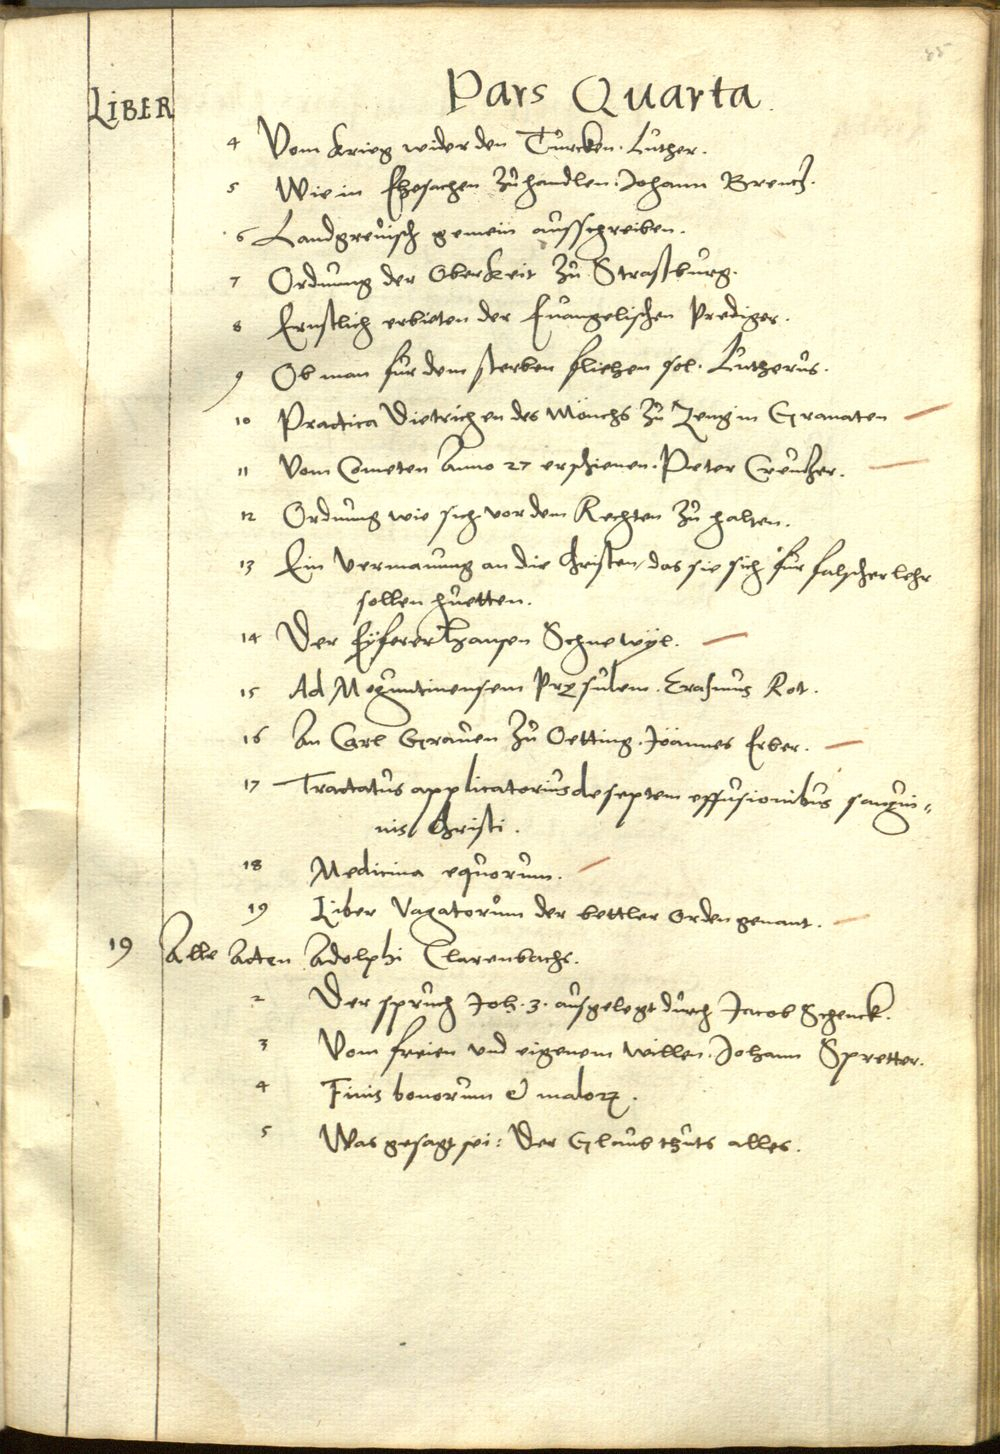 85
Pars Quarta.
LIBER
4 Vom krieg wider den Türcken. Luther.
5 Wie in Ehesachen zů handlen. Johann Brentz.
6 Landgrevisch gemein ausschreiben.
7 Ordnung der Oberkeit zů Straßburg.
8 Ernstlich erbieten der Evangelischen Prediger.
9 Ob man für dem sterben fliehen sol. Lutherus.
10 Practica Dietrichen des Mönchs zů Zeng in Granaten
11 Vom Cometen Anno 27 erschienen. Peter Creutzer.
12 Ordnung wie sich vor dem Rechten zů halten.
13 Ein Vermanung an die Christen, das sie sich für falscher lehr
sollen huetten.
14 Der Eÿferer Hansen Schnewÿl.
15 Ad Moguntinensem Præsulem. Erasmus Rot.
16 An Carl Graven zů Oetting. Joannes Erber.
17 Tractatus applicatorius de septem effusionibus sangui-
nis Christi.
18 Medicina equorum.
19 Liber Vagatorum der bettler Orden genant.
19 Alle Acten Adolphi Clarenbachs.
2 Der spruch Joh. 3. ausgelegt durch Jacob Schenck.
3 Vom freien und eigenem willen. Johann Spretter.
4 Finis bonorum & maloꝝ.
5 Was gesagt sei: Der Glaub thuts alles.